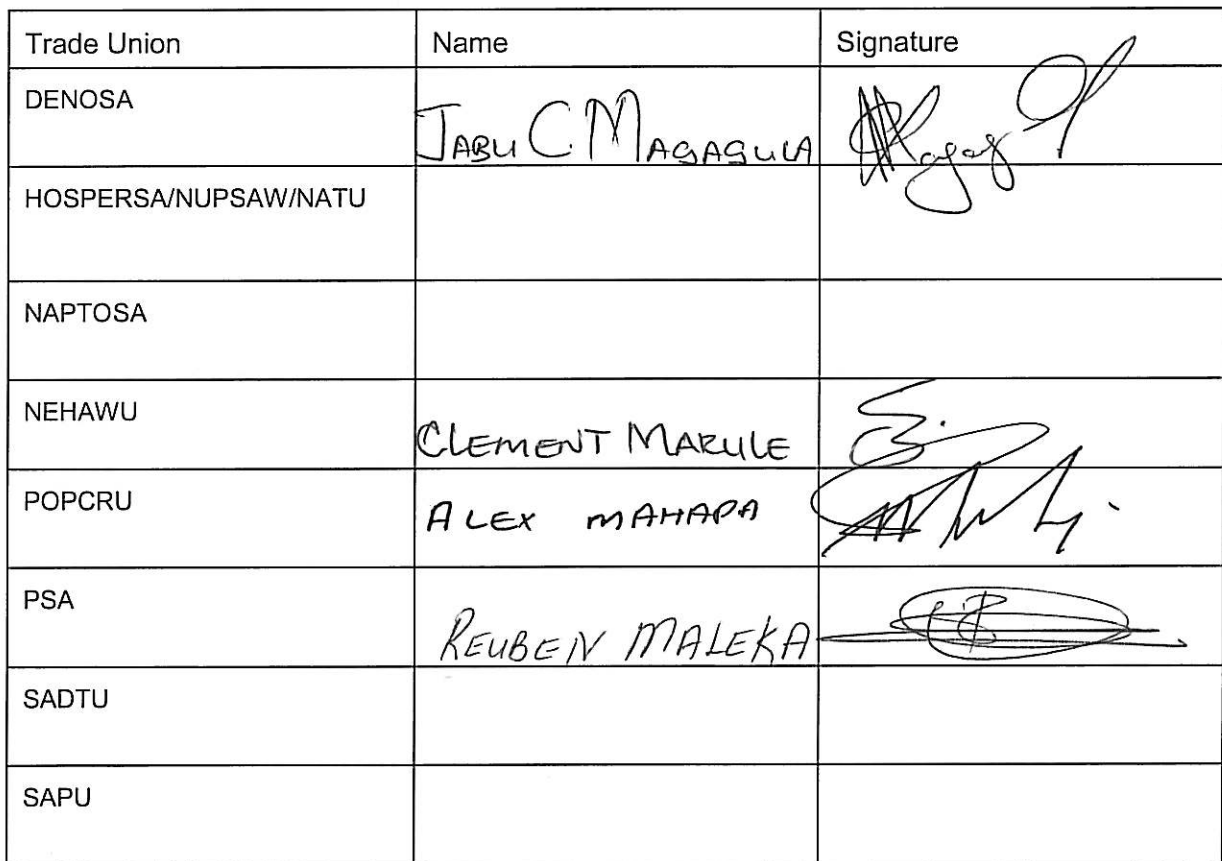 Trade Union Name Signature
DENOSA JABU C. MAGAGULA
HOSPERSA/NUPSAW/NATU
NAPTOSA
NEHAWU CLEMENT MARULE
POPCRU ALEX MAHAPA
PSA REUBEN MALEKA
SADTU
SAPU